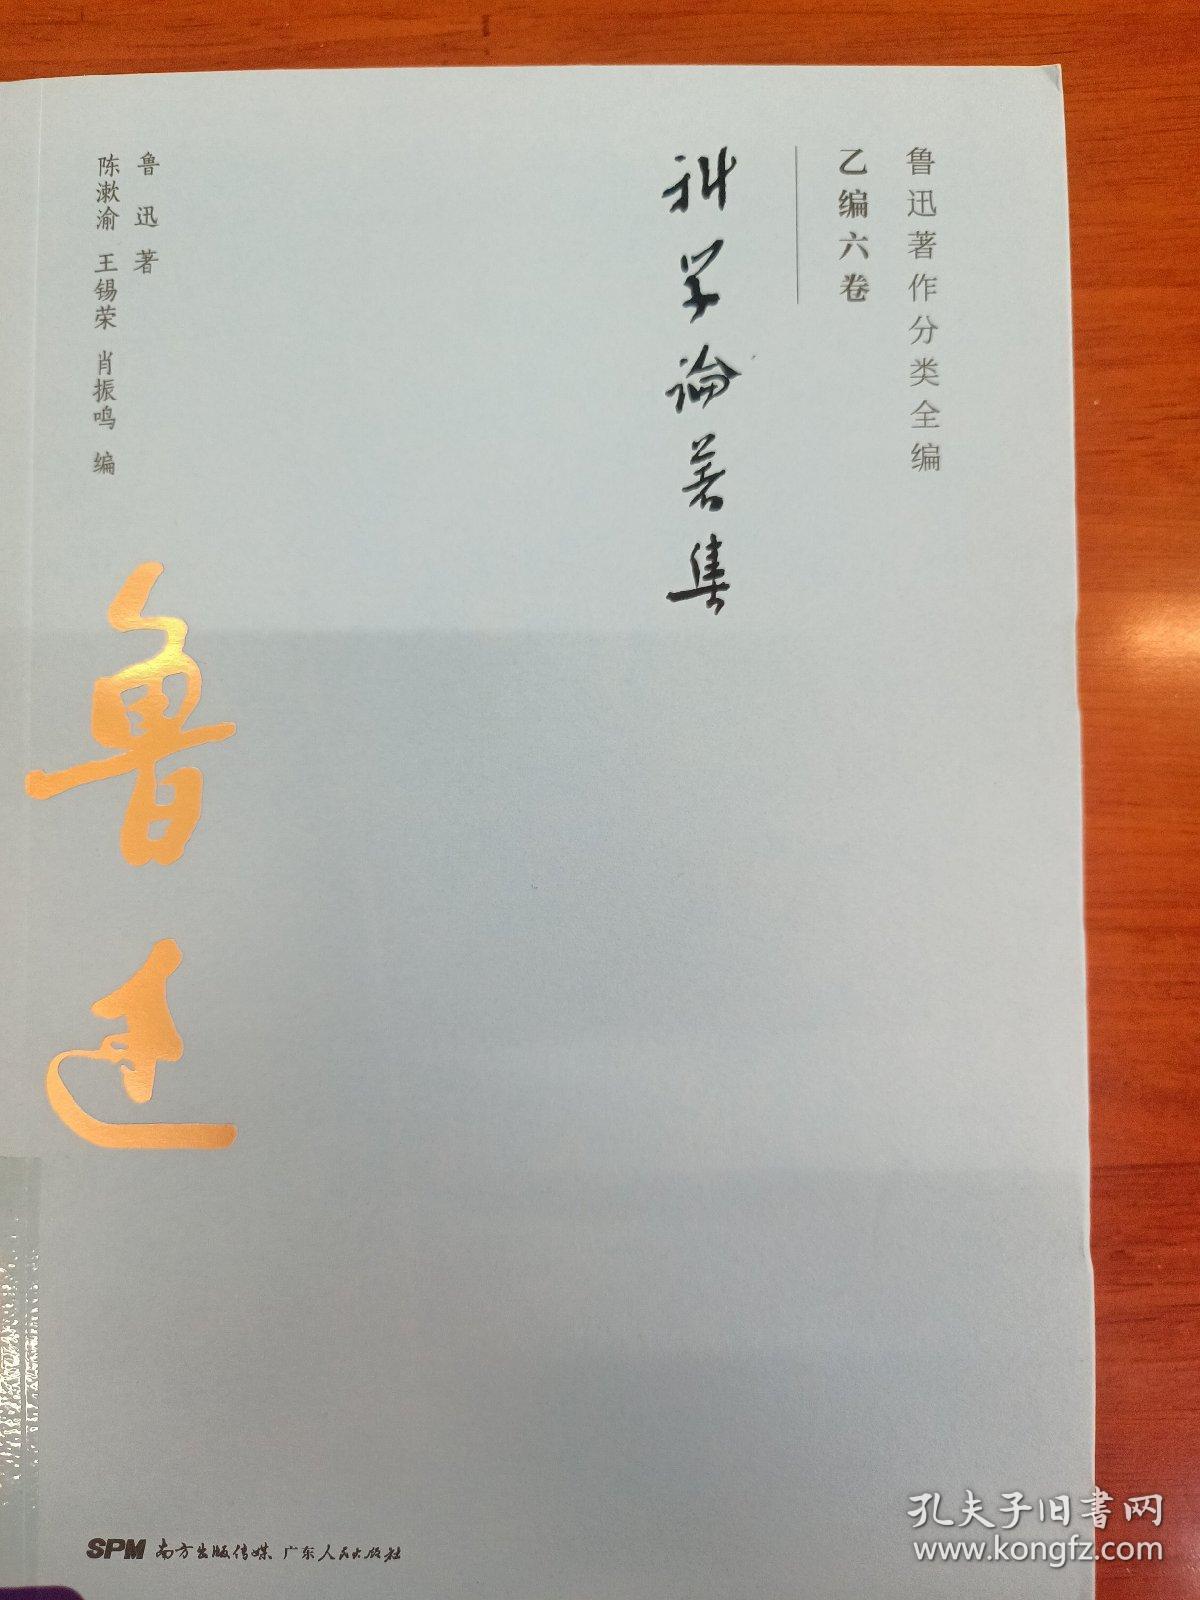 鲁迅著作分类全编
乙编六卷
科学论著集
鲁迅 著
陈漱渝 王锡荣 肖振鸣 编
鲁迅
SPM 南方出版传媒 广东人民出版社
孔夫子旧書网
www.kongfz.com